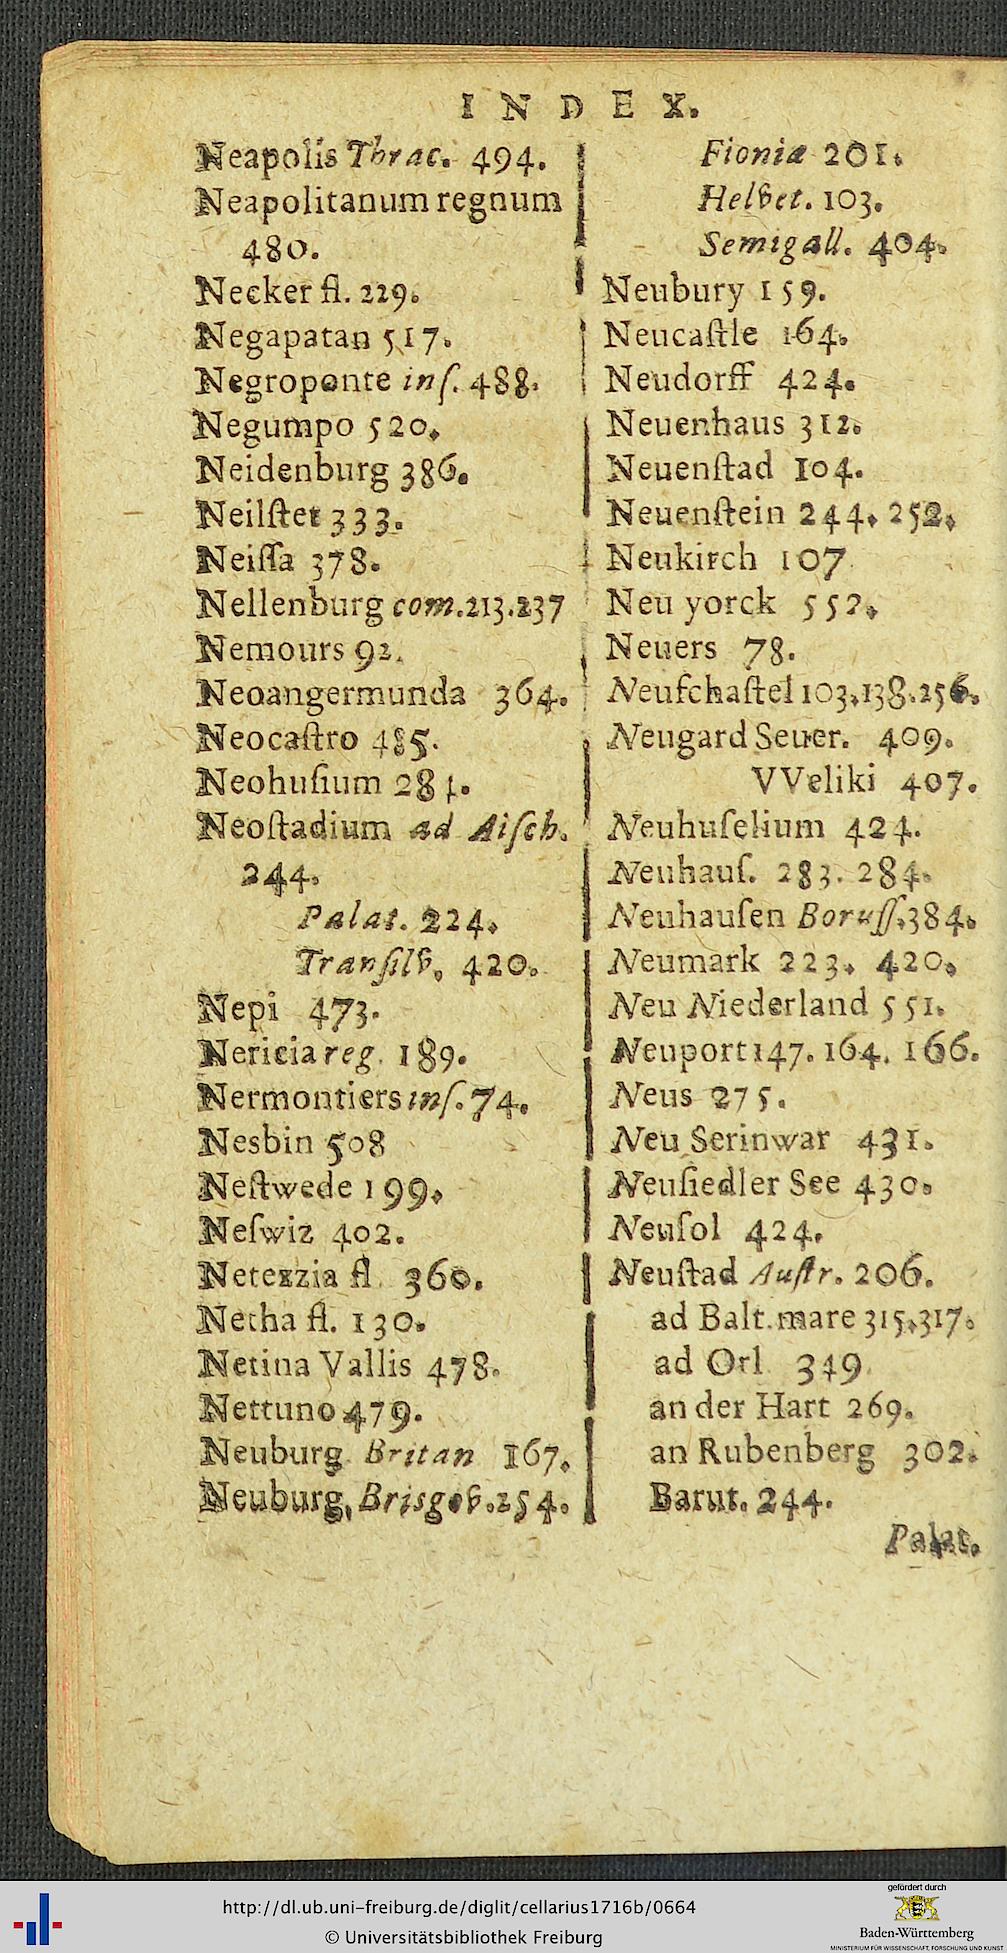 INDEX.
Neapolis Thrac. 494.
Neapolitanum regnum
480.
Necker fl. 229.
Negapatan 517.
Negroponte inſ. 488.
Negumpo 520.
Neidenburg 386.
Neilſtet 333.
Neiſſa 378.
Nellenburg com. 213. 237
Nemours 92.
Neoangermunda 364.
Neocaſtro 485.
Neohuſium 281.
Neoſtadium ad Aiſch.
244.
Palat. 224.
Tranſilv. 420.
Nepi 473.
Nericia reg. 189.
Nermontiers inſ. 74.
Nesbin 508
Neſtwede 199.
Neſwiz 402.
Netezzia fl. 360.
Netha fl. 130.
Netina Vallis 478.
Nettuno 479.
Neuburg Britan 167.
Neuburg, Brisgov. 254.
Fioniæ 201.
Helvet. 103.
Semigall. 404.
Neubury 159.
Neucaſtle 164.
Neudorff 424.
Neuenhaus 312.
Neuenſtad 104.
Neuenſtein 244. 252.
Neukirch 107
Neu yorck 552.
Neuers 78.
Neufchaſtel 103. 138. 256.
Neugard Seuer. 409.
VVeliki 407.
Neuhuſelium 424.
Neuhauſ. 283. 284.
Neuhauſen Boruſſ. 384.
Neumark 223. 420.
Neu Niederland 551.
Neuport 147. 164. 166.
Neus 275.
Neu Serinwar 431.
Neuſiedler See 430.
Neuſol 424.
Neuſtad Auſtr. 206.
ad Balt. mare 315. 317.
ad Orl 349
an der Hart 269.
an Rubenberg 302.
Barut. 244.
Palat.
http://dl.ub.uni-freiburg.de/diglit/cellarius1716b/0664
© Universitätsbibliothek Freiburg
gefördert durch
Baden-Württemberg
MINISTERIUM FÜR WISSENSCHAFT, FORSCHUNG UND KUNST